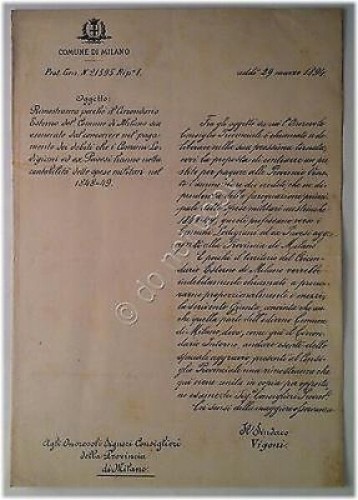 COMUNE DI MILANO
Prot. Gen. N° 21595 Rip. 1.
addì 29 marzo 1894.
Oggetto:
Rimostranza perché il Circondario
Esterno del Comune di Milano sia
esonerato dal concorrere nel paga-
mento dei debiti che i Comuni Lo-
digiani ed ex Pavesi hanno nella
contabilità delle spese militari nel
1848-49.
Fra gli oggetti su cui l'Onorevole
Consiglio Provinciale è chiamato a de-
liberare nella sua prossima tornata,
havvi la proposta di contrarre un pre-
stito per pagare alla Provincia
l'ammontare di crediti che in di-
pendenza
pale delle spese militari austriache
1848-49, questi professano verso i
Comuni Lodigiani ed ex Pavesi aggre-
gati alla Provincia di Milano.
E poiché il territorio del Circon-
dario Esterno di Milano verrebbe
indebitamente chiamato a procu-
rarne proporzionalmente i mezzi,
la scrivente Giunta, convinta che an-
che quella parte dell'odierno Comune
di Milano, deve, come già il Circon-
dario Interno, andare esente dallo
speciale aggravio, presenta al Consi-
glio Provinciale una rimostranza che
qui viene unita in copia per opportu-
no esame dei Sig.ri Consiglieri Provin.li
Coi sensi della maggiore osservanza
Il Sindaco
Vigoni
Agli Onorevoli Signori Consiglieri
della Provincia
di Milano.